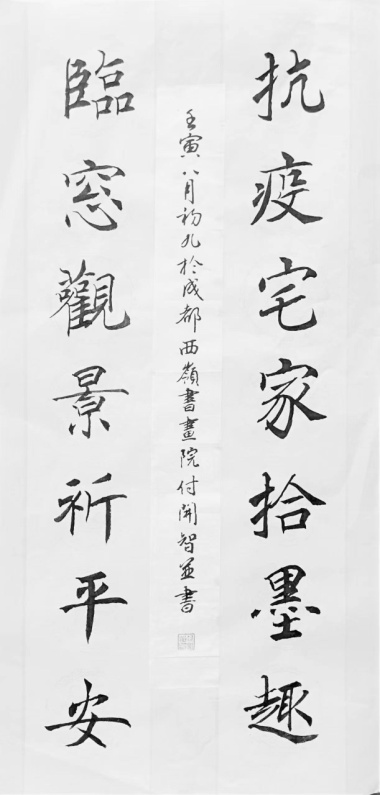 抗疫宅家拾墨趣
臨窓觀景祈平安
壬寅八月初九於成都西嶺書畫院付開智並書